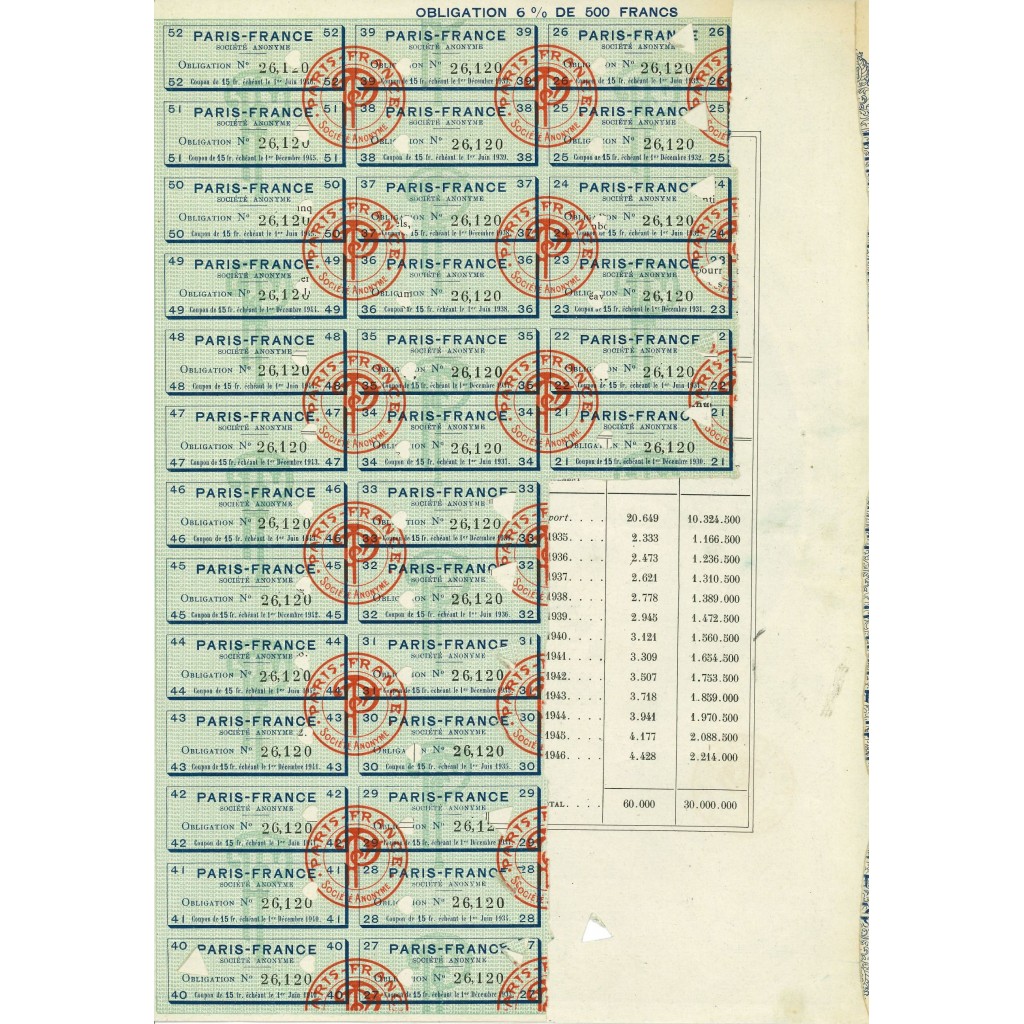 OBLIGATION 6 % DE 500 FRANCS
52 PARIS-FRANCE 52
SOCIÉTÉ ANONYME
OBLIGATION Nº
52 Coupon de 15 fr. échéant le 1er Juin 52
39 PARIS-FRANCE 39
SOCIÉTÉ ANONYME
26,120
39 39
26 PARIS-FRANCE 26
SOCIÉTÉ ANONYME
26,120
26 26
51 PARIS-FRANCE 51
SOCIÉTÉ ANONYME
OBLIGATION Nº
51 Coupon de 15 fr. échéant le 1er Décembre 1945. 51
38 PARIS-FRANCE 38
SOCIÉTÉ ANONYME
Nº 26,120
38 Coupon de 15 fr. échéant le 1er Juin 1939. 38
25 PARIS-FRANCE 25
SOCIÉTÉ ANONYME
Nº 26,120
25 Coupon de 15 fr. échéant le 1er Décembre 1932. 25
50 PARIS-FRANCE 50
SOCIÉTÉ ANONYME
OBLIGATION Nº 26,120
50 Coupon de 15 fr. échéant le 1er Juin 50
37 PARIS-FRANCE 37
SOCIÉTÉ ANONYME
Nº 26,120
37 37
24 PARIS-FRANCE 24
SOCIÉTÉ ANONYME
Nº 26,120
24 24
49 PARIS-FRANCE 49
SOCIÉTÉ ANONYME
OBLIGATION Nº 26,120
49 Coupon de 15 fr. échéant le 1er Décembre 1944. 49
36 PARIS-FRANCE 36
SOCIÉTÉ ANONYME
Nº 26,120
36 Coupon de 15 fr. échéant le 1er Juin 1938. 36
23 PARIS-FRANCE 23
SOCIÉTÉ ANONYME
Nº 26,120
23 Coupon de 15 fr. échéant le 1er Décembre 1931. 23
48 PARIS-FRANCE 48
SOCIÉTÉ ANONYME
OBLIGATION Nº 26,120
48 Coupon de 15 fr. échéant le 1er Juin 48
35 PARIS-FRANCE 35
SOCIÉTÉ ANONYME
Nº 26,120
35 35
22 PARIS-FRANCE 2
SOCIÉTÉ ANONYME
Nº 26,120
22 22
47 PARIS-FRANCE 47
SOCIÉTÉ ANONYME
OBLIGATION Nº 26,120
47 Coupon de 15 fr. échéant le 1er Décembre 1943. 47
34 PARIS-FRANCE 34
SOCIÉTÉ ANONYME
Nº 26,120
34 Coupon de 15 fr. échéant le 1er Juin 1937. 34
21 PARIS-FRANC 21
SOCIÉTÉ ANONYME
Nº 26,120
21 Coupon de 15 fr. échéant le 1er Décembre 1930. 21
46 PARIS-FRANCE 46
SOCIÉTÉ ANONYME
OBLIGATION Nº 26,120
46 Coupon de 15 fr. échéant le 1er Juin 46
33 PARIS-FRANCE 33
SOCIÉTÉ ANONYME
Nº 26,120
33 33
45 PARIS-FRANCE 45
SOCIÉTÉ ANONYME
OBLIGATION Nº 26,120
45 Coupon de 15 fr. échéant le 1er Décembre 1942. 45
32 PARIS-FRANCE 32
SOCIÉTÉ ANONYME
Nº 26,120
32 Coupon de 15 fr. échéant le 1er Juin 1936. 32
44 PARIS-FRANCE 44
SOCIÉTÉ ANONYME
OBLIGATION Nº 26,120
44 Coupon de 15 fr. échéant le 1er Juin 44
31 PARIS-FRANCE 31
SOCIÉTÉ ANONYME
Nº 26,120
31 31
43 PARIS-FRANCE 43
SOCIÉTÉ ANONYME
OBLIGATION Nº 26,120
43 Coupon de 15 fr. échéant le 1er Décembre 1941. 43
30 PARIS-FRANCE 30
SOCIÉTÉ ANONYME
Nº 26,120
30 Coupon de 15 fr. échéant le 1er Juin 1935. 30
42 PARIS-FRANCE 42
SOCIÉTÉ ANONYME
OBLIGATION Nº 26,120
42 Coupon de 15 fr. échéant le 1er Juin 42
29 PARIS-FRANCE 29
SOCIÉTÉ ANONYME
Nº 26,12
29 29
41 PARIS-FRANCE 41
SOCIÉTÉ ANONYME
OBLIGATION Nº 26,120
41 Coupon de 15 fr. échéant le 1er Décembre 1940. 41
28 PARIS-FRANCE 28
SOCIÉTÉ ANONYME
Nº 26,120
28 Coupon de 15 fr. échéant le 1er Juin 1934. 28
40 PARIS-FRANCE 40
SOCIÉTÉ ANONYME
OBLIGATION Nº 26,120
40 Coupon de 15 fr. échéant le 1er Juin 40
27 PARIS-FRANCE 7
SOCIÉTÉ ANONYME
Nº 26,120
27 27
PARIS-FRANCE
SOCIÉTÉ ANONYME
port. . . . 20.649 10.324.500
1935. . . . 2.333 1.166.500
1936. . . . 2.473 1.236.500
1937. . . . 2.621 1.310.500
1938. . . . 2.778 1.389.000
1939. . . . 2.945 1.472.500
1940. . . . 3.121 1.560.500
1941. . . . 3.309 1.654.500
1942. . . . 3.507 1.753.500
1943. . . . 3.718 1.859.000
1944. . . . 3.941 1.970.500
1945. . . . 4.177 2.088.500
1946. . . . 4.428 2.214.000
TAL. . . . 60.000 30.000.000